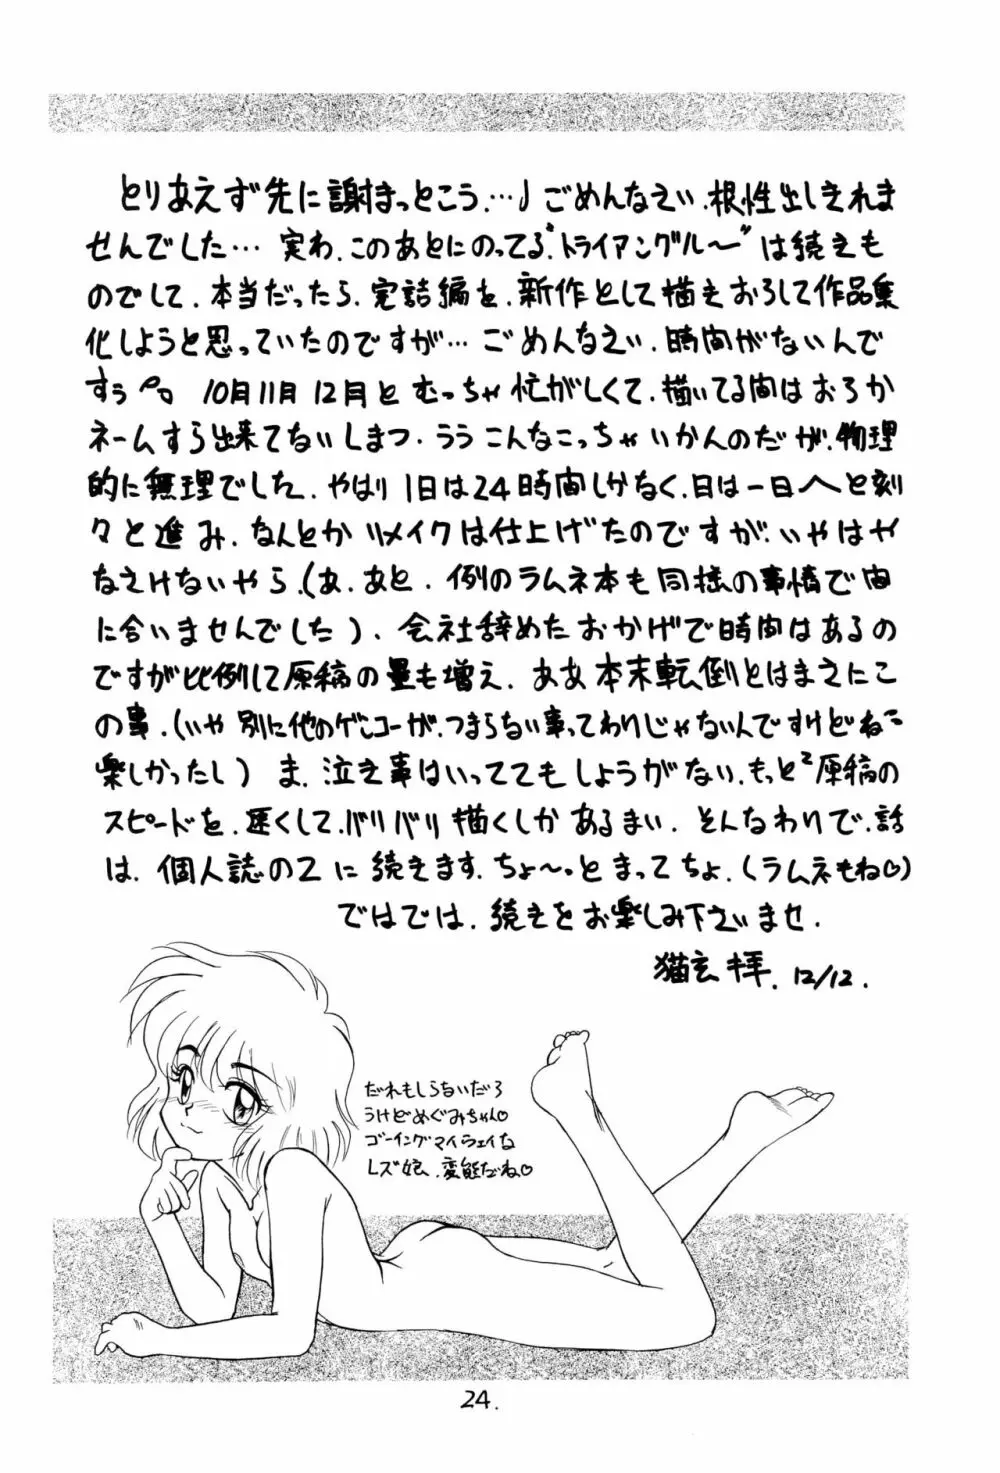 とりあえず先に謝まっとこう…♩ごめんなさい.根性出しきれま
せんでした…実わ.このあとにのってる"トライアングル〜"は続きも
のでして.本当だったら.完詰編を.新作として描きおろして作品集
化しようと思っていたのですが…ごめんなさい.時間がないんで
すぅ 10月11月12月とむっちゃ忙がしくて.描いてる間はおろか
ネームすら出来てないしまつ.ううこんなこっちゃいかんのだが.物理
的に無理でした.やはり1日は24時間しかなく.日は一日へと刻
々と進み.なんとかリメイクは仕上げたのですが.いやはや
なさけないやら.(あ.あと.例のラムネ本も同様の事情で間
に合いませんでした).会社辞めたおかげで時間はあるの
ですが比例して原稿の量も増え.ああ本末転倒とはまさにこ
の事.(いや別に他のゲンコーが.つまらない事ってわけじゃないんですけどね
楽しかったし)ま.泣き事はいっててもしょうがない.もっと²原稿の
スピードを.速くして.バリバリ描くしかあるまい.そんなわけで.話
は.個人誌の2に続きます.ちょ〜っとまってちょ.(ラムネもね♡)
ではでは.続きをお楽しみ下さいませ.
猫玄拝.12/12.
だれもしらないだろ
うけどめぐみちゃん♡
ゴーイングマイウェイな
レズ娘.変態だね♡
24.